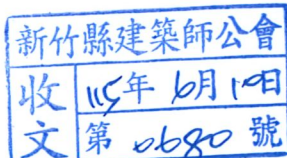 新竹縣建築師公會
收文
115年6月10日
第0680號